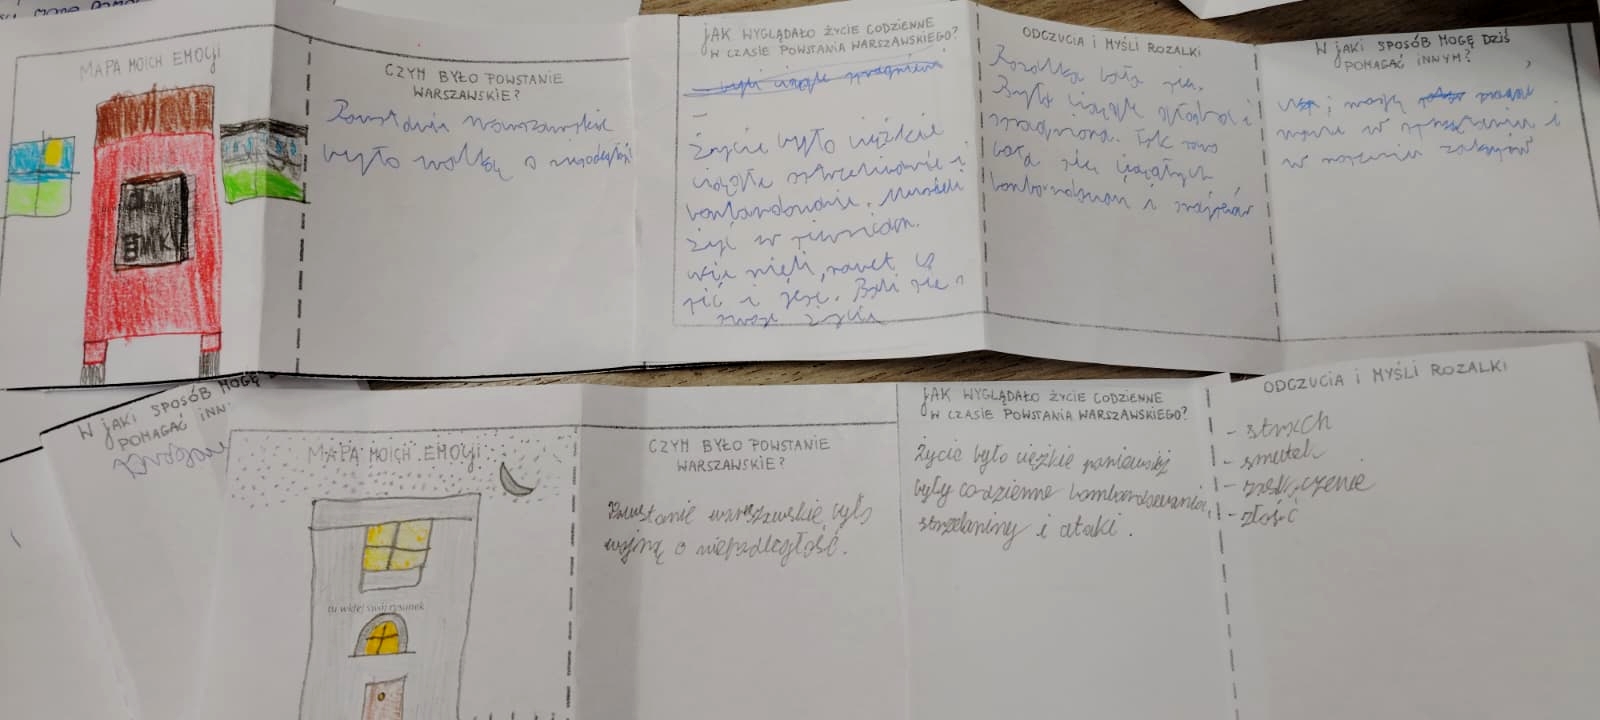 MAPA MOICH EMOCJI
CZYM BYŁO POWSTANIE
WARSZAWSKIE?
warszawskie
było walką o
JAK WYGLĄDAŁO ŻYCIE CODZIENNE
W CZASIE POWSTANIA WARSZAWSKIEGO?
Życie było ciężkie
i
bombardowanie. Musieli
żyć w piwnicach.
nie mieli, nawet co
pić i jeść. Bali się o
swoje życia
ODCZUCIA I MYŚLI ROZALKI
Rozalka bała się.
Była ciągle głodna i
spragniona.
bała się
bombardowań i
W JAKI SPOSÓB MOGĘ DZIŚ
POMAGAĆ INNYM?
mamie w sprzątaniu i
w noszeniu zakupów
W JAKI SPOSÓB MOGĘ
POMAGAĆ INN
MAPA MOICH EMOCJI
tu wklej swój rysunek
CZYM BYŁO POWSTANIE
WARSZAWSKIE?
Powstanie warszawskie było
wojną o niepodległość.
JAK WYGLĄDAŁO ŻYCIE CODZIENNE
W CZASIE POWSTANIA WARSZAWSKIEGO?
Życie było ciężkie ponieważ
były codzienne bombardowania,
strzelaniny i ataki.
ODCZUCIA I MYŚLI ROZALKI
- strach
- smutek
- złość